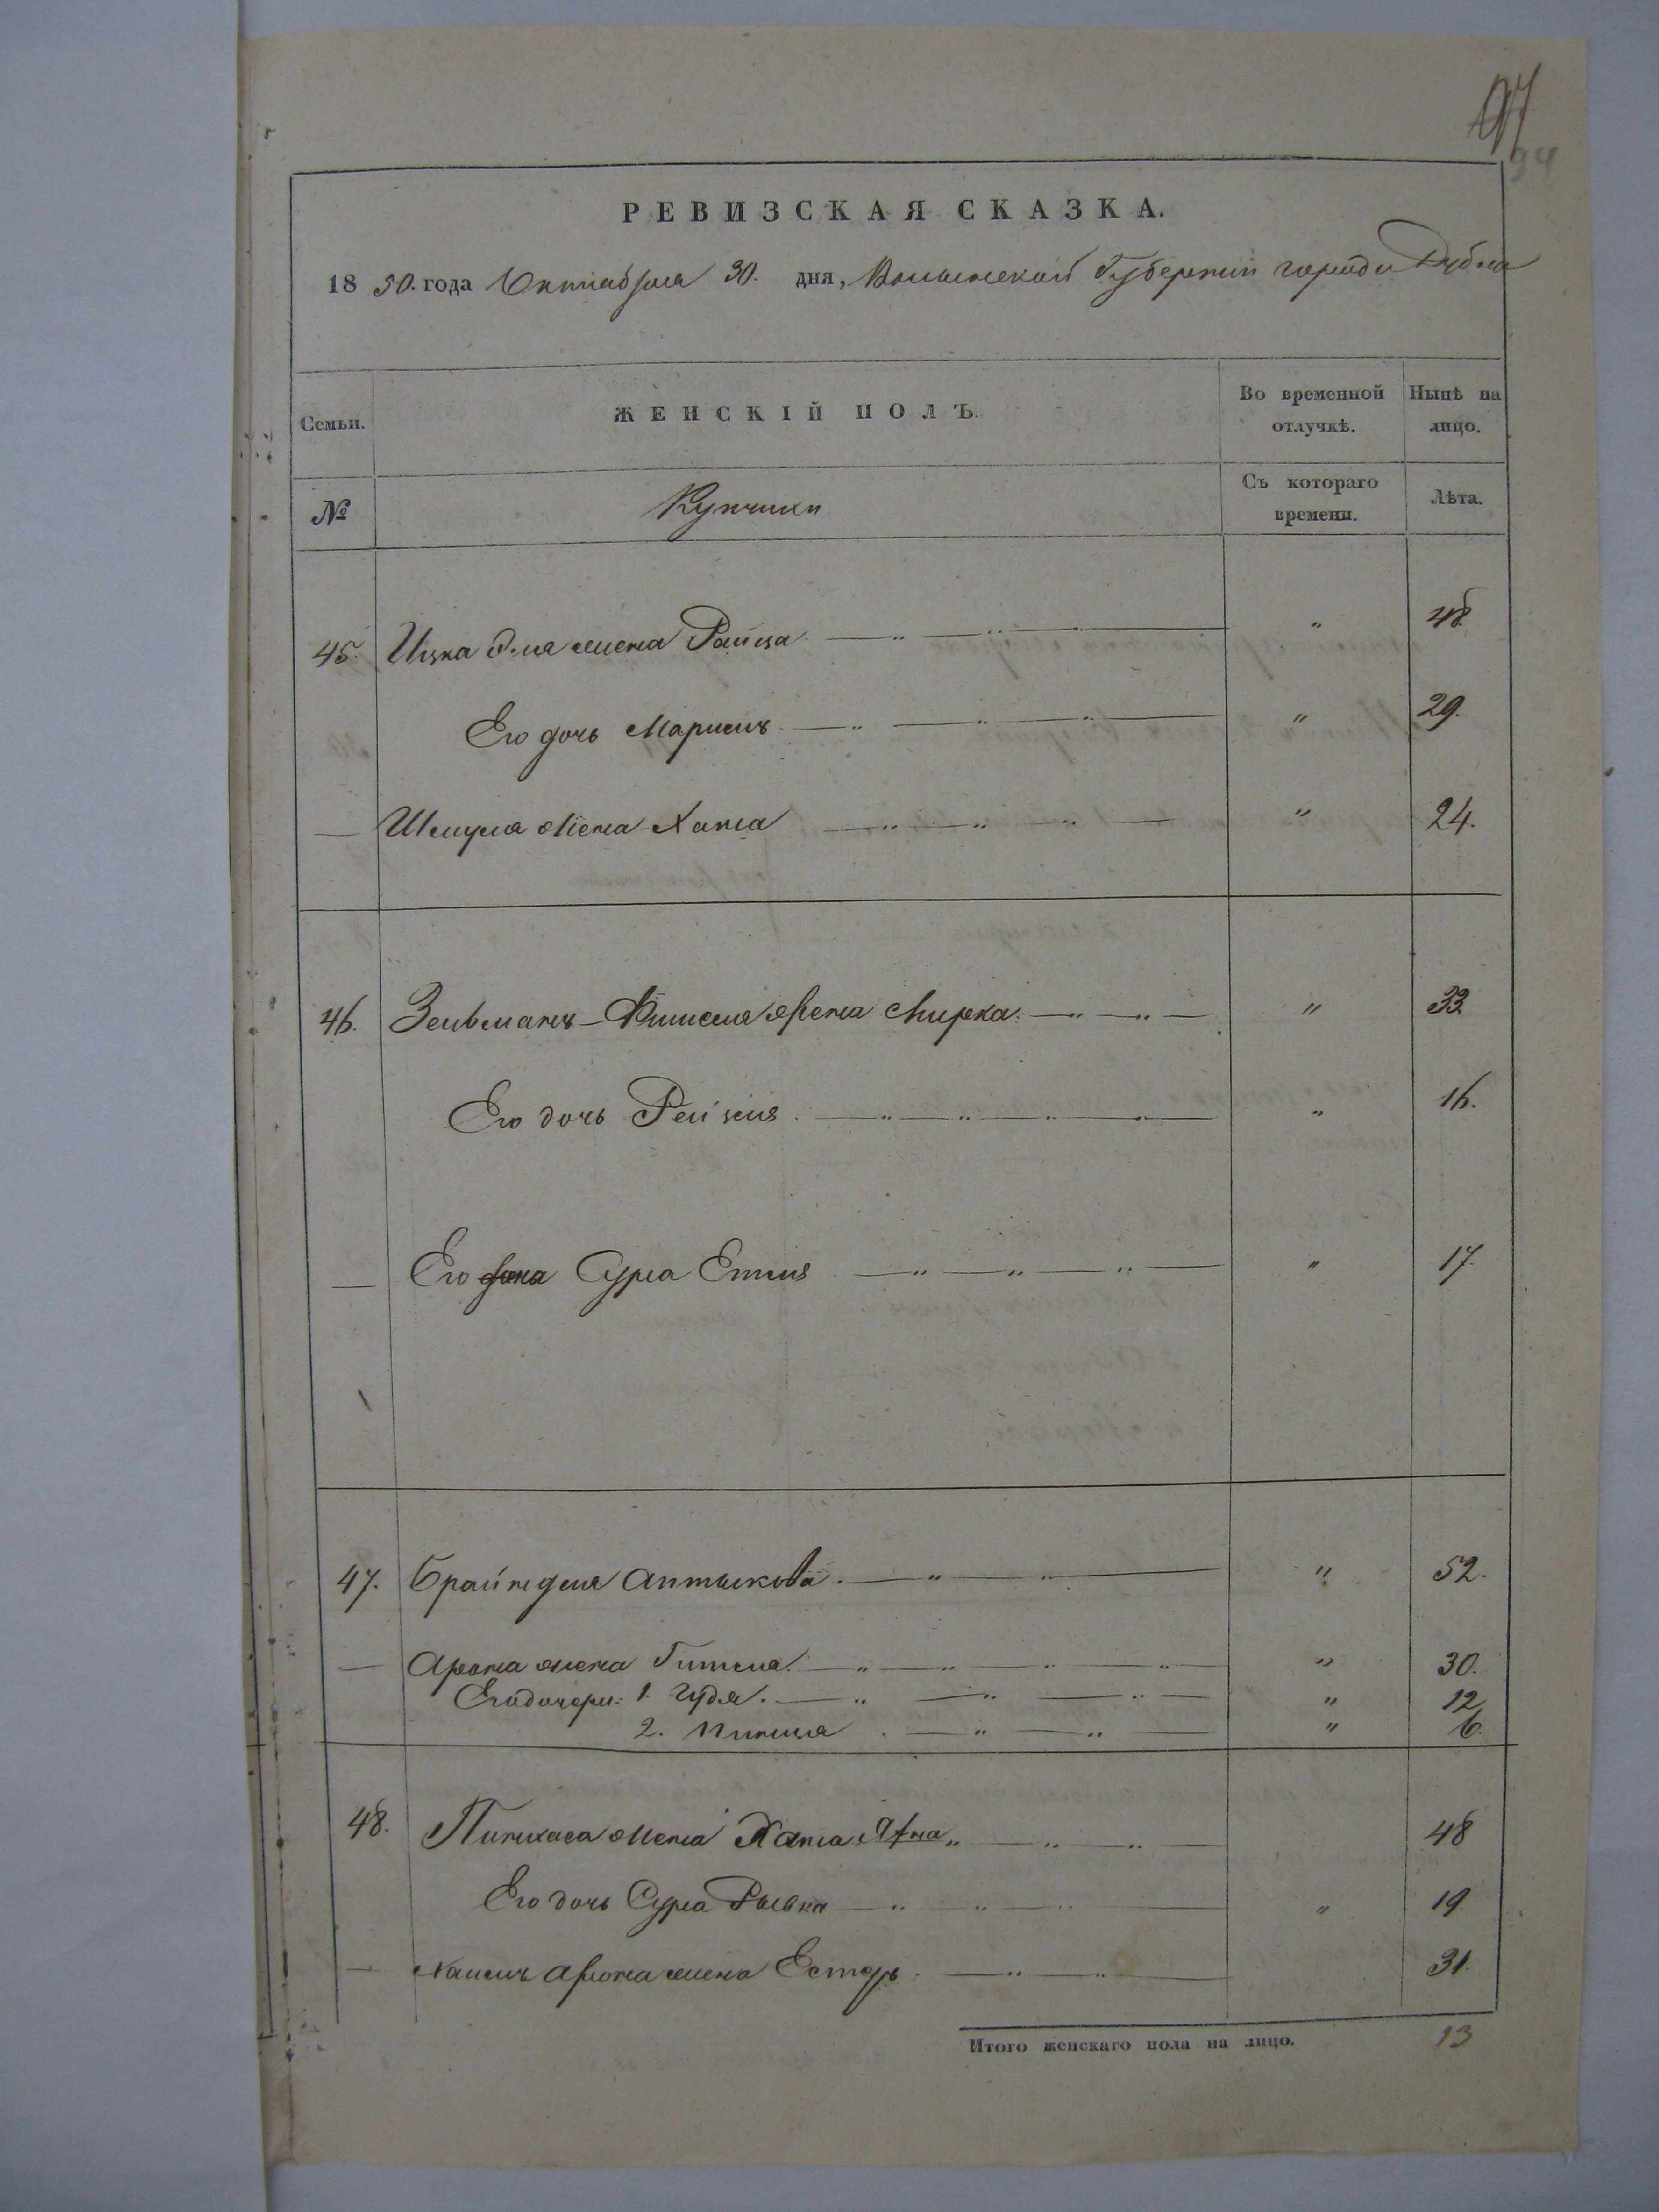 97
94
РЕВИЗСКАЯ СКАЗКА.
1850. года Октября 30. дня, Волынской Губернии города Дубна
Семьи.
ЖЕНСКІЙ ПОЛЪ.
Во временной отлучкѣ.
Нынѣ на лицо.
№
Купчихи
Съ котораго времени.
Лѣта.
45. Ицка Эля жена Раица — „ — „ — „ 48
Его дочь Марисъ — „ — „ — „ — „ 29.
— Шмуля жена Хана — „ — „ — „ — „ 24.
46. Зельманъ - Фишеля жена Мирка. — „ — „ — „ 33.
Его дочь Рейзля. — „ — „ — „ — „ — „ 16.
— Его жена Сура Етля — „ — „ — „ — „ 17.
47. Брайндля Аптыкова. — „ — „ — „ 52.
— Арона жена Гитля. — „ — „ — „ — „ — „ 30.
Его дочери: 1. Гудя. — „ — „ — „ — „ 12
2. Минця. — „ — „ — „ 6.
48. Пинхаса жена Хана „ — „ — „ — 48
Его дочь Сура Рывка — „ — „ — „ — „ 19.
— Хаимъ Арона жена Естеръ. — „ — „ — 31.
Итого женскаго пола на лицо. 13